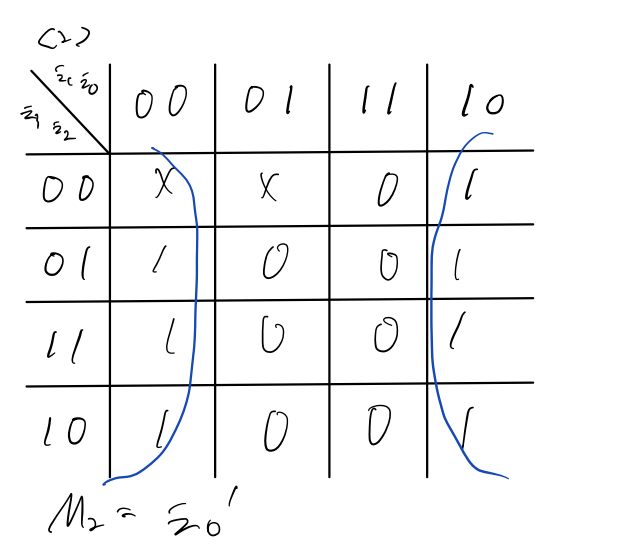 (2)
z₁ z₀
z₃ z₂
00 01 11 10
00 X X 0 1
01 1 0 0 1
11 1 0 0 1
10 1 0 0 1
M₂ = z₀'